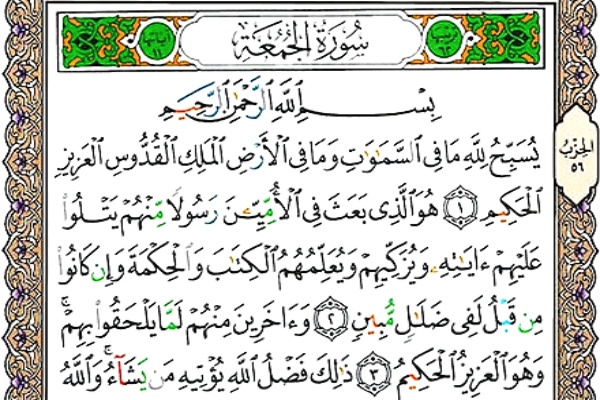 سُورَةُ الجُمُعَةِ
بِسْمِ ٱللَّهِ ٱلرَّحْمَٰنِ ٱلرَّحِيمِ
يُسَبِّحُ لِلَّهِ مَا فِى ٱلسَّمَٰوَٰتِ وَمَا فِى ٱلْأَرْضِ ٱلْمَلِكِ ٱلْقُدُّوسِ ٱلْعَزِيزِ
ٱلْحَكِيمِ ١ هُوَ ٱلَّذِى بَعَثَ فِى ٱلْأُمِّيِّـۧنَ رَسُولًا مِّنْهُمْ يَتْلُوا۟
عَلَيْهِمْ ءَايَٰتِهِۦ وَيُزَكِّيهِمْ وَيُعَلِّمُهُمُ ٱلْكِتَٰبَ وَٱلْحِكْمَةَ وَإِن كَانُوا۟
مِن قَبْلُ لَفِى ضَلَٰلٍ مُّبِينٍ ٢ وَءَاخَرِينَ مِنْهُمْ لَمَّا يَلْحَقُوا۟ بِهِمْ ۚ
وَهُوَ ٱلْعَزِيزُ ٱلْحَكِيمُ ٣ ذَٰلِكَ فَضْلُ ٱللَّهِ يُؤْتِيهِ مَن يَشَآءُ ۚ وَٱللَّهُ
الحِزْبُ
٥٦